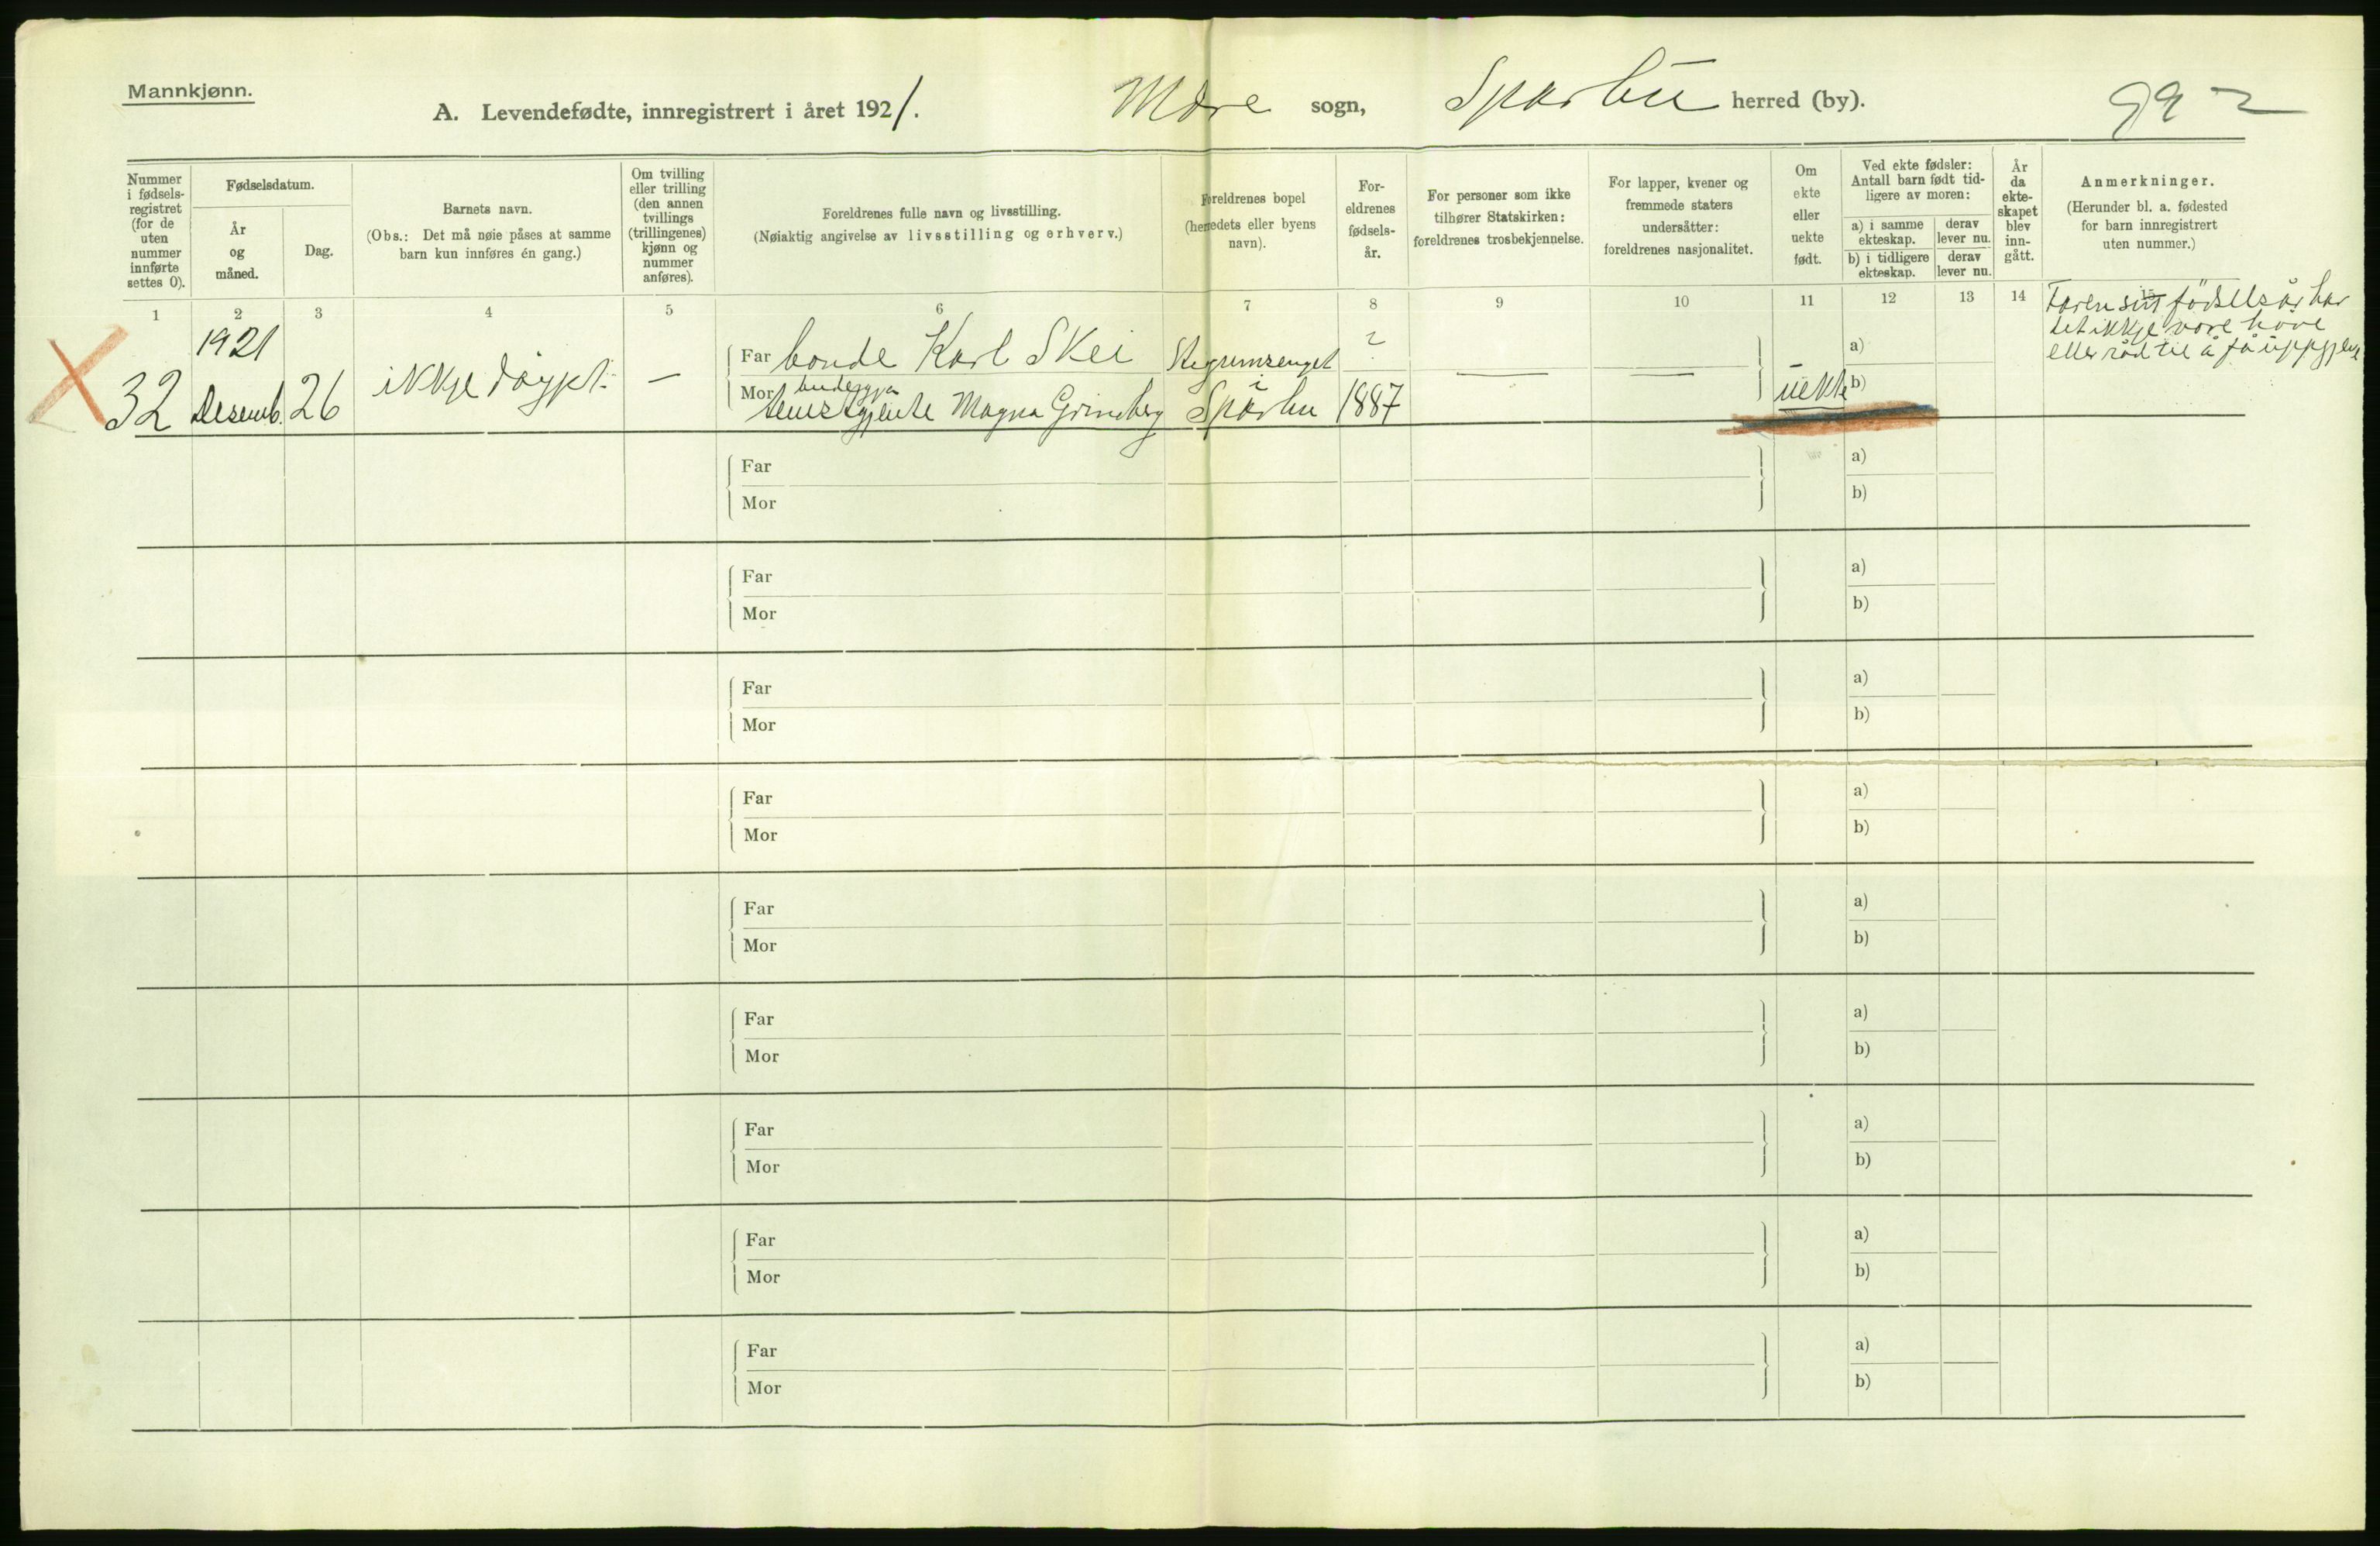 Mannkjønn.
A. Levendefødte, innregistrert i året 1921. Mære sogn, Sparbu herred (by). 992
Nummer i fødsels-registret (for de uten nummer innførte settes 0).
Fødselsdatum.
År og måned.
Dag.
Barnets navn.
(Obs.: Det må nøie påses at samme barn kun innføres én gang.)
Om tvilling eller trilling (den annen tvillings (trillingenes) kjønn og nummer anføres).
Foreldrenes fulle navn og livsstilling.
(Nøiaktig angivelse av livsstilling og erhverv.)
Foreldrenes bopel
(herredets eller byens navn).
For-eldrenes fødsels-år.
For personer som ikke tilhører Statskirken: foreldrenes trosbekjennelse.
For lapper, kvener og fremmede staters undersåtter: foreldrenes nasjonalitet.
Om ekte eller uekte født.
Ved ekte fødsler: Antall barn født tid-ligere av moren:
a) i samme ekteskap.
derav lever nu.
b) i tidligere ekteskap.
derav lever nu.
År da ekte-skapet blev inn-gått.
Anmerkninger.
(Herunder bl. a. fødested for barn innregistrert uten nummer.)
1 2 3 4 5 6 7 8 9 10 11 12 13 14 15
Faren sitt födselsår har
det ikkje vore höve
eller råd til å få uppgjeve
1921
Far bonde Karl Skei ? a)
32 Desemb. 26 ikkje döypt. —
budeggja
Mor tenestgjente Magna Grindberg i Sparbu 1887 — — uekte b)
Far a)
Mor b)
Far a)
Mor b)
Far a)
Mor b)
Far a)
Mor b)
Far a)
Mor b)
Far a)
Mor b)
Far a)
Mor b)
Far a)
Mor b)
Far a)
Mor b)